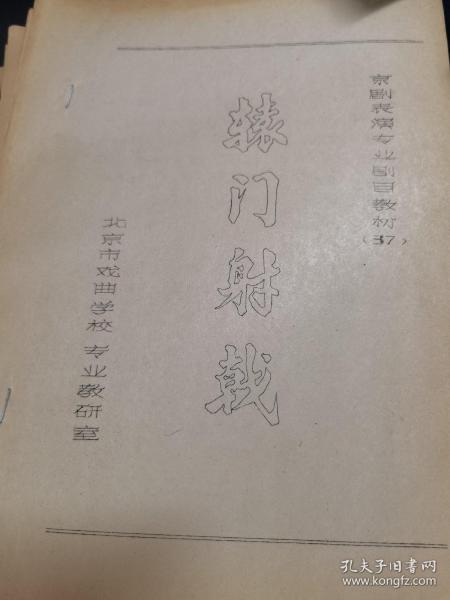 京剧表演专业剧目教材(37)
辕门射戟
北京市戏曲学校 专业教研室
孔夫子旧书网
www.kongfz.com